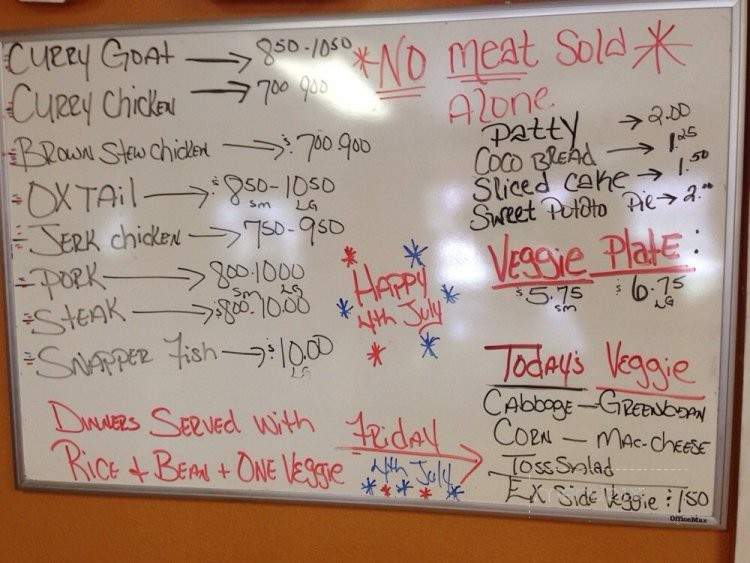 CURRY GOAT → 850-1050
CURRY Chicken → 700 900
BROWN Stew chicken → $700-900
OXTAil → $850-1050
sm LG
JERK chicken → 750-950
PORK → 800-1000
sm LG
STEAK → $800-10.00
SNAPPER Fish → $10.00
LG
DINNERS SERVED With
RICE + BEAN + ONE VEGGIE
*NO meat Sold *
Alone
Patty → 2.00
COCO BREAD → 1.25
Sliced cake → 1.50
Sweet Potato Pie → 2.00
Veggie Plate:
$5.75 $6.75
sm LG
HAPPY
4th July
TODAY'S Veggie
Cabbage - GREENBEAN
CORN - MAC-CHEESE
TOSS SALAD
EX Side Veggie: 150
FRIDAY
4th July
OfficeMax